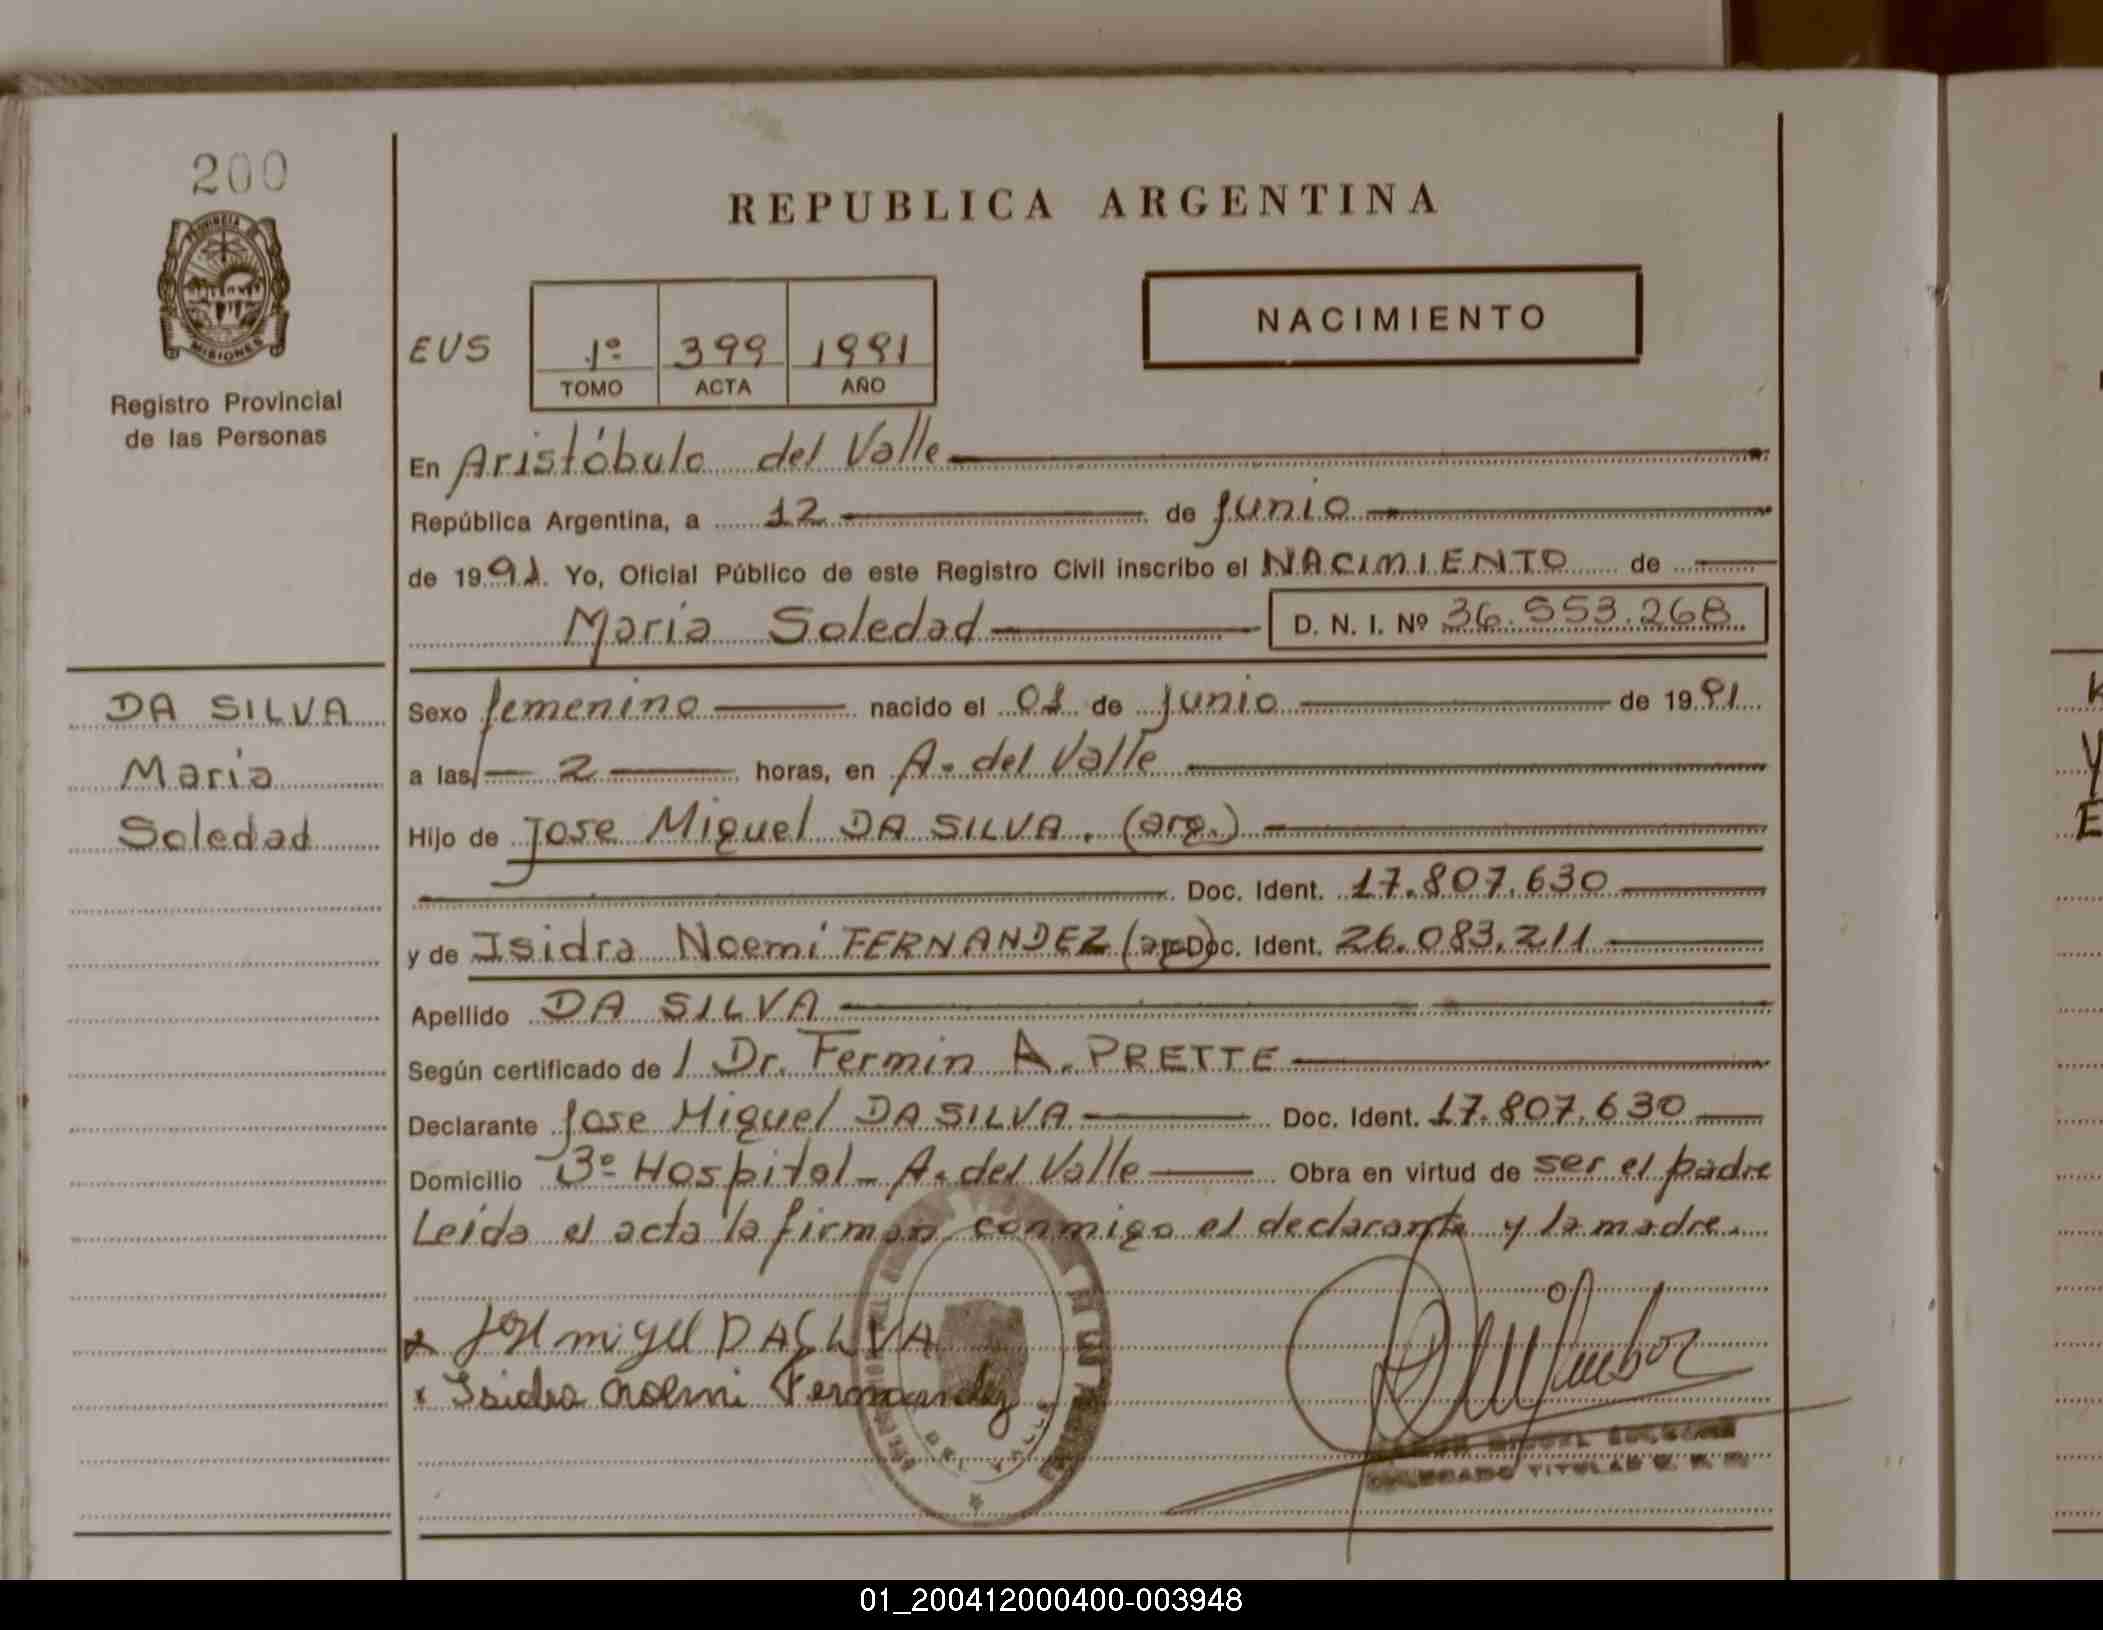 200
PROVINCIA DE
MISIONES
Registro Provincial
de las Personas
REPUBLICA ARGENTINA
EUS
1º 399 1991
TOMO ACTA AÑO
NACIMIENTO
En Aristóbulo del Valle
República Argentina, a 12 de Junio
de 1991. Yo, Oficial Público de este Registro Civil inscribo el NACIMIENTO de
María Soledad D. N. I. Nº 36.553.268
DA SILVA
María
Soledad
Sexo femenino nacido el 01 de Junio de 1991
a las 2 horas, en A. del Valle
Hijo de Jose Miguel DA SILVA. (arg.)
Doc. Ident. 17.807.630
y de Isidra Noemí FERNANDEZ (arg) Doc. Ident. 26.083.211
Apellido DA SILVA
Según certificado de l Dr. Fermin A. PRETTE
Declarante Jose Miguel DA SILVA Doc. Ident. 17.807.630
Domicilio Bº Hospital - A. del Valle Obra en virtud de ser el padre
Leída el acta la firman conmigo el declarante y la madre.
x José miguel DASILVA
x Isidra noemi Fernandez
DEL VALLE
MIGUEL
DELEGADO TITULAR R. P. P.
01_200412000400-003948